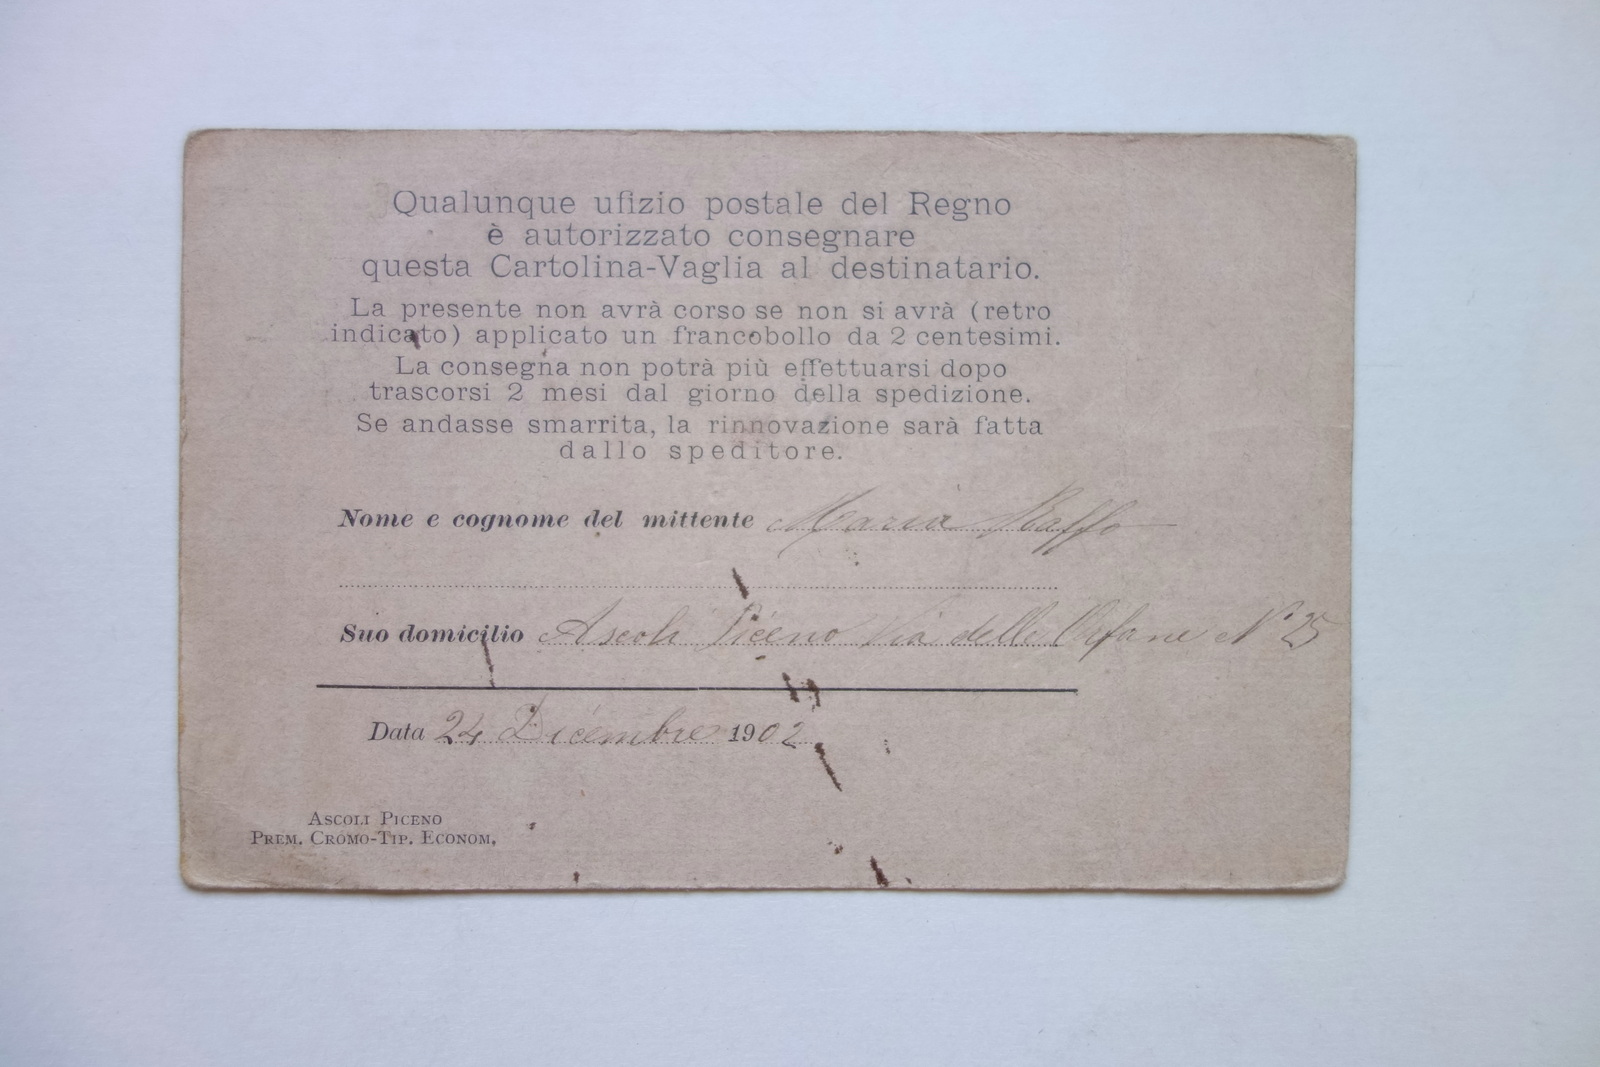 Qualunque ufizio postale del Regno
è autorizzato consegnare
questa Cartolina-Vaglia al destinatario.
La presente non avrà corso se non si avrà (retro
indicato) applicato un francobollo da 2 centesimi.
La consegna non potrà più effettuarsi dopo
trascorsi 2 mesi dal giorno della spedizione.
Se andasse smarrita, la rinnovazione sarà fatta
dallo speditore.
Nome e cognome del mittente Maria
Suo domicilio Ascoli Piceno Via delle Orfane N° 25
Data 24 Dicembre 1902
ASCOLI PICENO
PREM. CROMO-TIP. ECONOM.